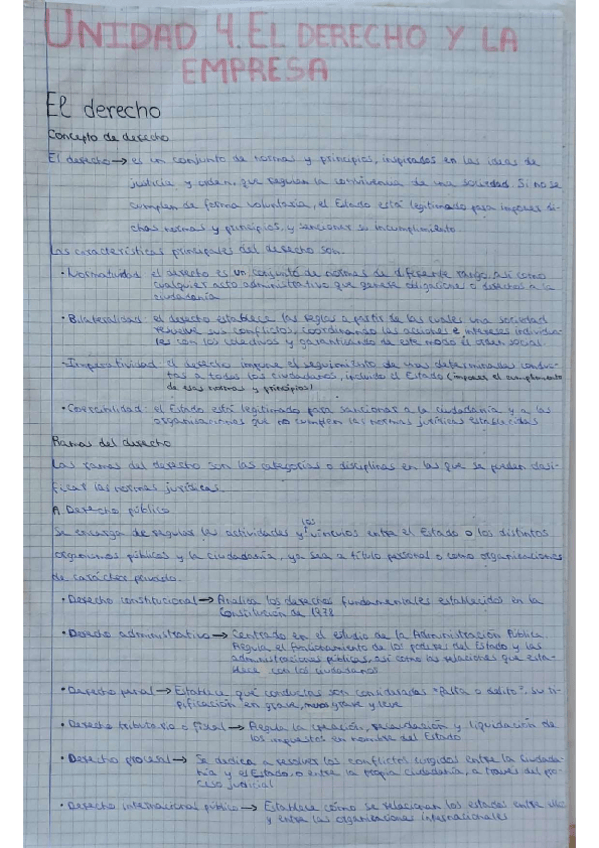 UNIDAD 4. EL DERECHO Y LA
EMPRESA
El derecho
Concepto de derecho
El derecho → es un conjunto de normas y principios, inspirados en las ideas de
justicia y orden, que regulan la convivencia de una sociedad. Si no se
cumplen de forma voluntaria, el Estado está legitimado para imponer di-
chas normas y principios, y sancionar su incumplimiento.
Las características principales del derecho son:
• Normatividad: el derecho es un conjunto de normas de diferente rango, así como
cualquier acto administrativo que genere obligaciones o derechos a la
ciudadanía
• Bilateralidad: el derecho establece las reglas a partir de las cuales una sociedad
resuelve sus conflictos, coordinando las acciones e intereses individua-
les con los colectivos y garantizando de este modo el orden social.
• Imperatividad: el derecho impone el seguimiento de unas determinadas conduc-
tas a todos los ciudadanos, incluido el Estado (imponer el cumplimiento
de esas normas y principios)
• Coercibilidad: el Estado está legitimado para sancionar a la ciudadanía y a las
organizaciones que no cumplen las normas jurídicas establecidas
Ramas del derecho
Las ramas del derecho son las categorías o disciplinas en las que se pueden clasi-
ficar las normas jurídicas.
A Derecho público.
Se encarga de regular las actividades y los vínculos entre el Estado o los distintos
organismos públicos y la ciudadanía, ya sea a título personal o como organizaciones
de carácter privado.
• Derecho constitucional → Analiza los derechos fundamentales establecidos en la
Constitución de 1978
• Derecho administrativo → Centrado en el estudio de la Administración Pública.
Regula el funcionamiento de los poderes del Estado y las
administraciones públicas, así como las relaciones que esta-
blece con los ciudadanos
• Derecho penal → Establece qué conductas son consideradas "falta o delito", su ti-
pificación en grave, menos grave y leve
• Derecho tributario o fiscal → Regula la creación, recaudación y liquidación de
los impuestos en nombre del Estado
• Derecho procesal → Se dedica a resolver los conflictos surgidos entre la ciudada-
nía y el Estado, o entre la propia ciudadanía, a través del pro-
ceso judicial
• Derecho internacional público → Establece cómo se relacionan los estados entre ellos
y entre las organizaciones internacionales